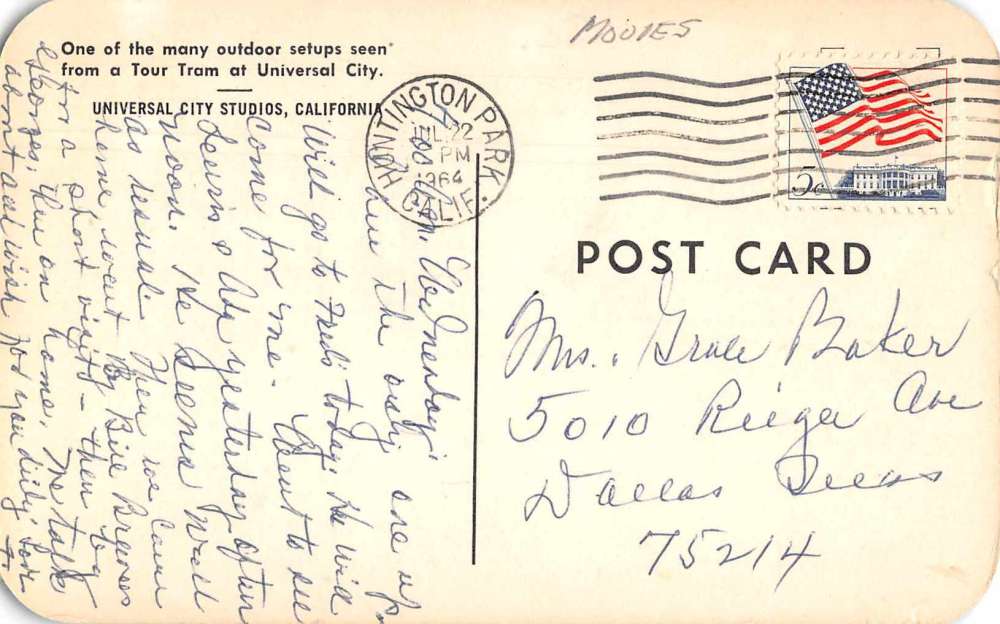 MOVIES
One of the many outdoor setups seen
from a Tour Tram at Universal City.
UNIVERSAL CITY STUDIOS, CALIFORNIA
HUNTINGTON PARK
JUL 22
PM
1964
CALIF.
5c
POST CARD
Mrs. Grace Baker
5010 Reiger Ave
Dallas Texas
75214
7:00 a.m. Wednesday.
am the only one up.
Will go to Fred's today. He will
Come for me. Went to see
& Ada yesterday after
noon. He seems well
as usual. Then we came
home went by Bill
for a short visit – then by
Georges, then on home. We talk
about and wish for you daily. Love